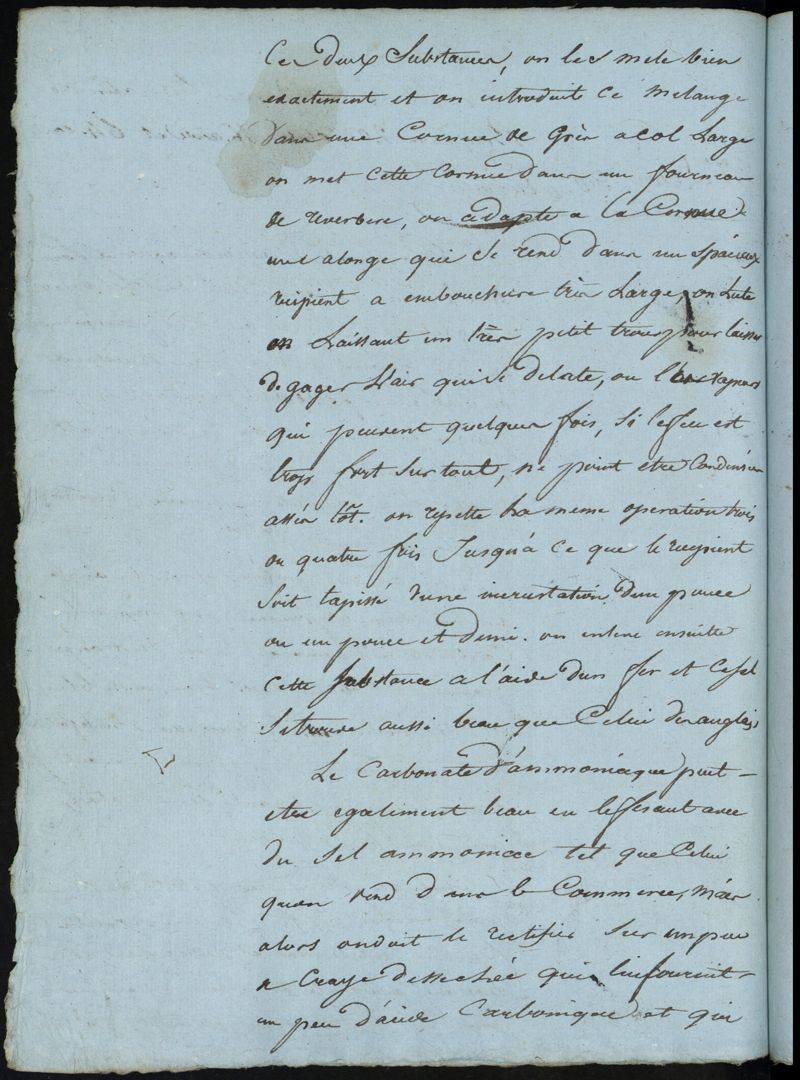 Ces deux Substances, on les mele bien
exactement et on introduit ce melange
dans une Cornue de Grès a col Large
on met cette Cornue dans un fourneau
de reverbere, on adapte a la Cornue
une alonge qui se rend dans un spacieux
recipient a embouchure très Large, on lute
en Laissant un très petit trou pour laisser
degager L'air qui se delate, ou l' vapeurs
qui peuvent quelques fois, si le feu est
trop fort sur tout, ne point etre Condensées
assés tôt. on repette la meme operation trois
ou quatre fois Jusqu'a ce que le recipient
soit tapissé d'une incrustation d'un pouce
ou un pouce et demi. on enleve ensuitte
cette substance a l'aide d'un fer et ce sel
se trouve aussi beau que Celui des anglais
Le Carbonate d'ammoniaque peut
etre egaliment beau en le fesant avec
du Sel ammoniac tel que Celui
quon vend dans le Commerce, mais
alors on doit le rectifier sur un peu
de Craye dessechée qui lui fournit
un peu d'acide Carbonique et qui